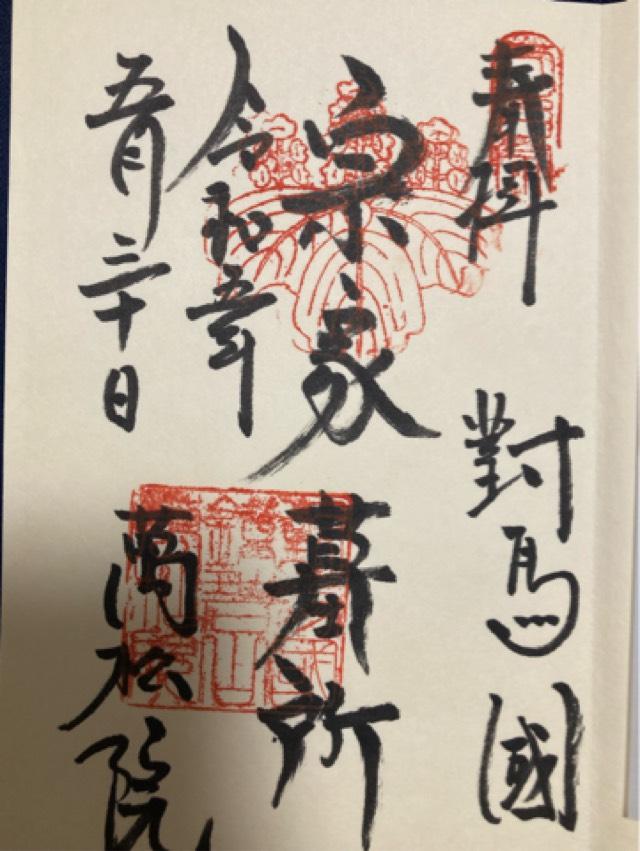 奉拝 對馬國
宗家墓所
令和五年
五月三十日 萬松院